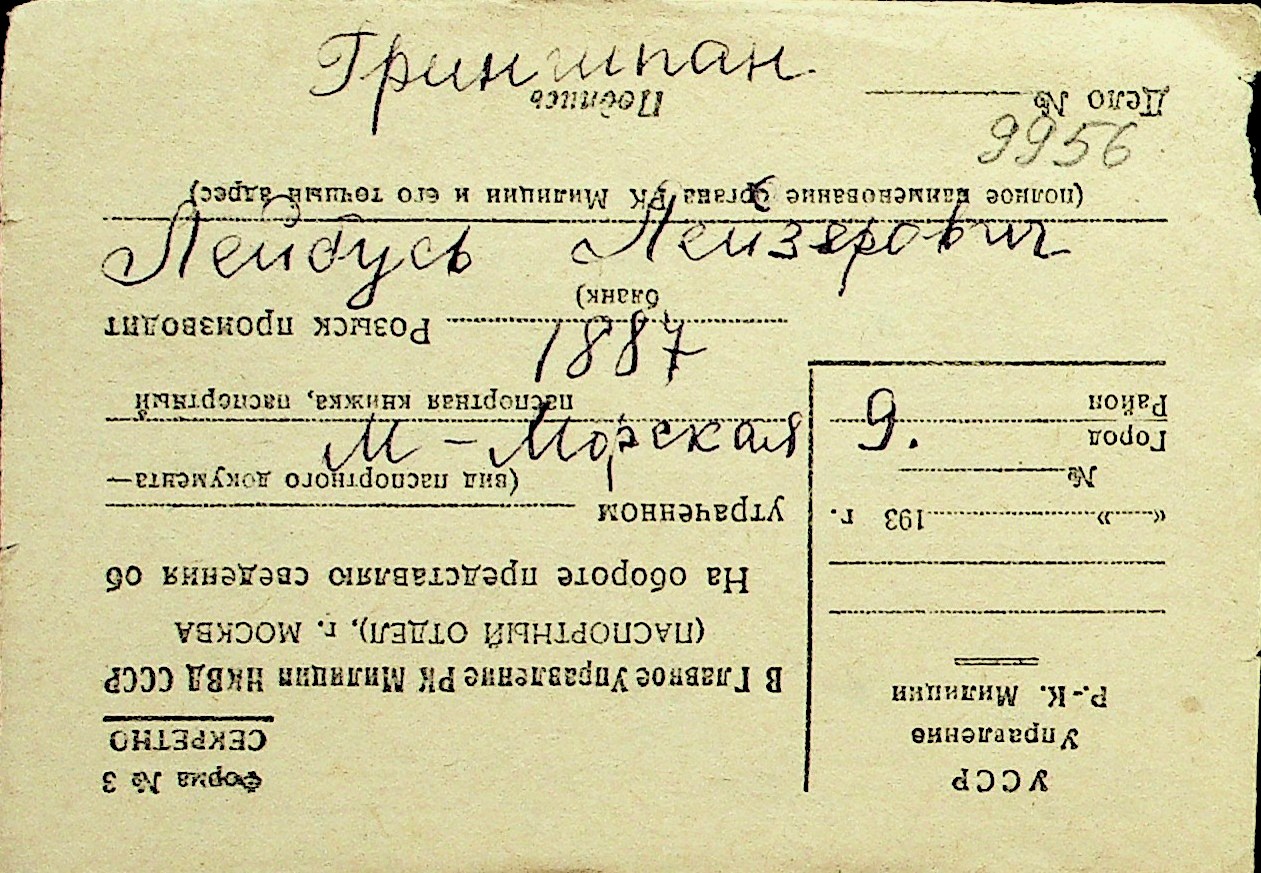 Гриншпан
9956
Лейбусь Лейзерович
1887
М-Морская 9.
Форма № 3
СЕКРЕТНО
УССР
Управление
Р.-К. Милиции
«......»..................193 г.
№
Город
Район
В Главное Управление РК Милиции НКВД СССР
(ПАСПОРТНЫЙ ОТДЕЛ), г. МОСКВА
На обороте представляю сведения об
утраченном
(вид паспортного документа—
паспортная книжка, паспортный
бланк)
Розыск производит
(полное наименование органа РК Милиции и его точный адрес)
Дело №
Подпись